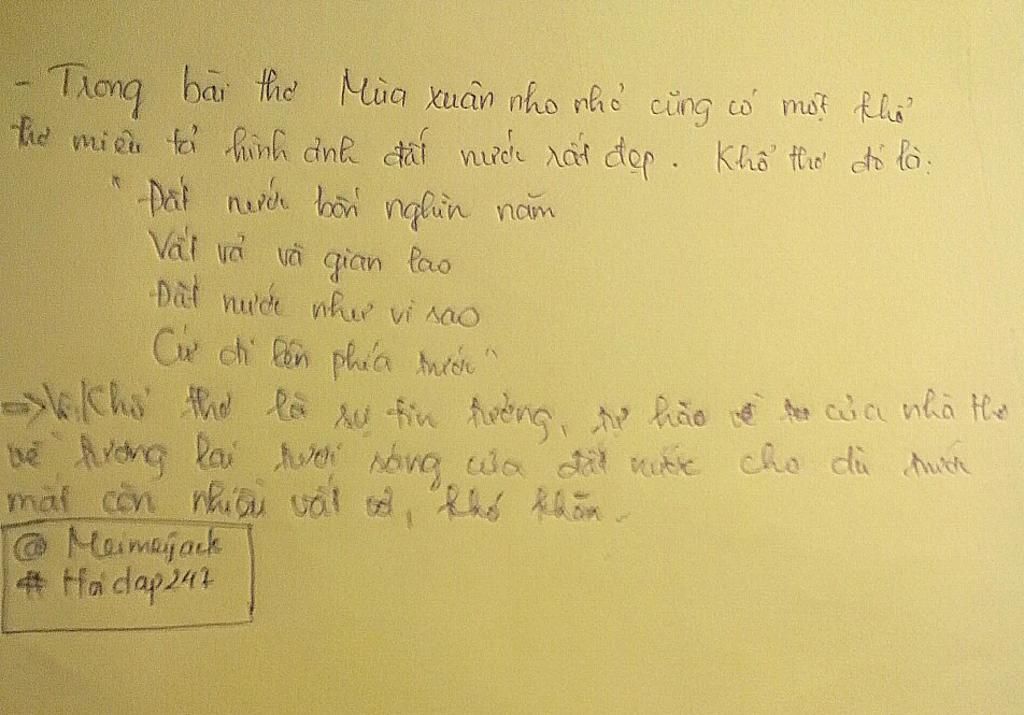 - Trong bài thơ Mùa xuân nho nhỏ cũng có một khổ
thơ miêu tả hình ảnh đất nước rất đẹp. Khổ thơ đó là:
"Đất nước bốn nghìn năm
Vất vả và gian lao
Đất nước như vì sao
Cứ đi lên phía trước"
=> Khổ thơ là sự tin tưởng, tự hào của nhà thơ
về tương lai tươi sáng của đất nước cho dù trước
mắt còn nhiều vất vả, khó khăn.
@ Meimeijack
# Hoidap247